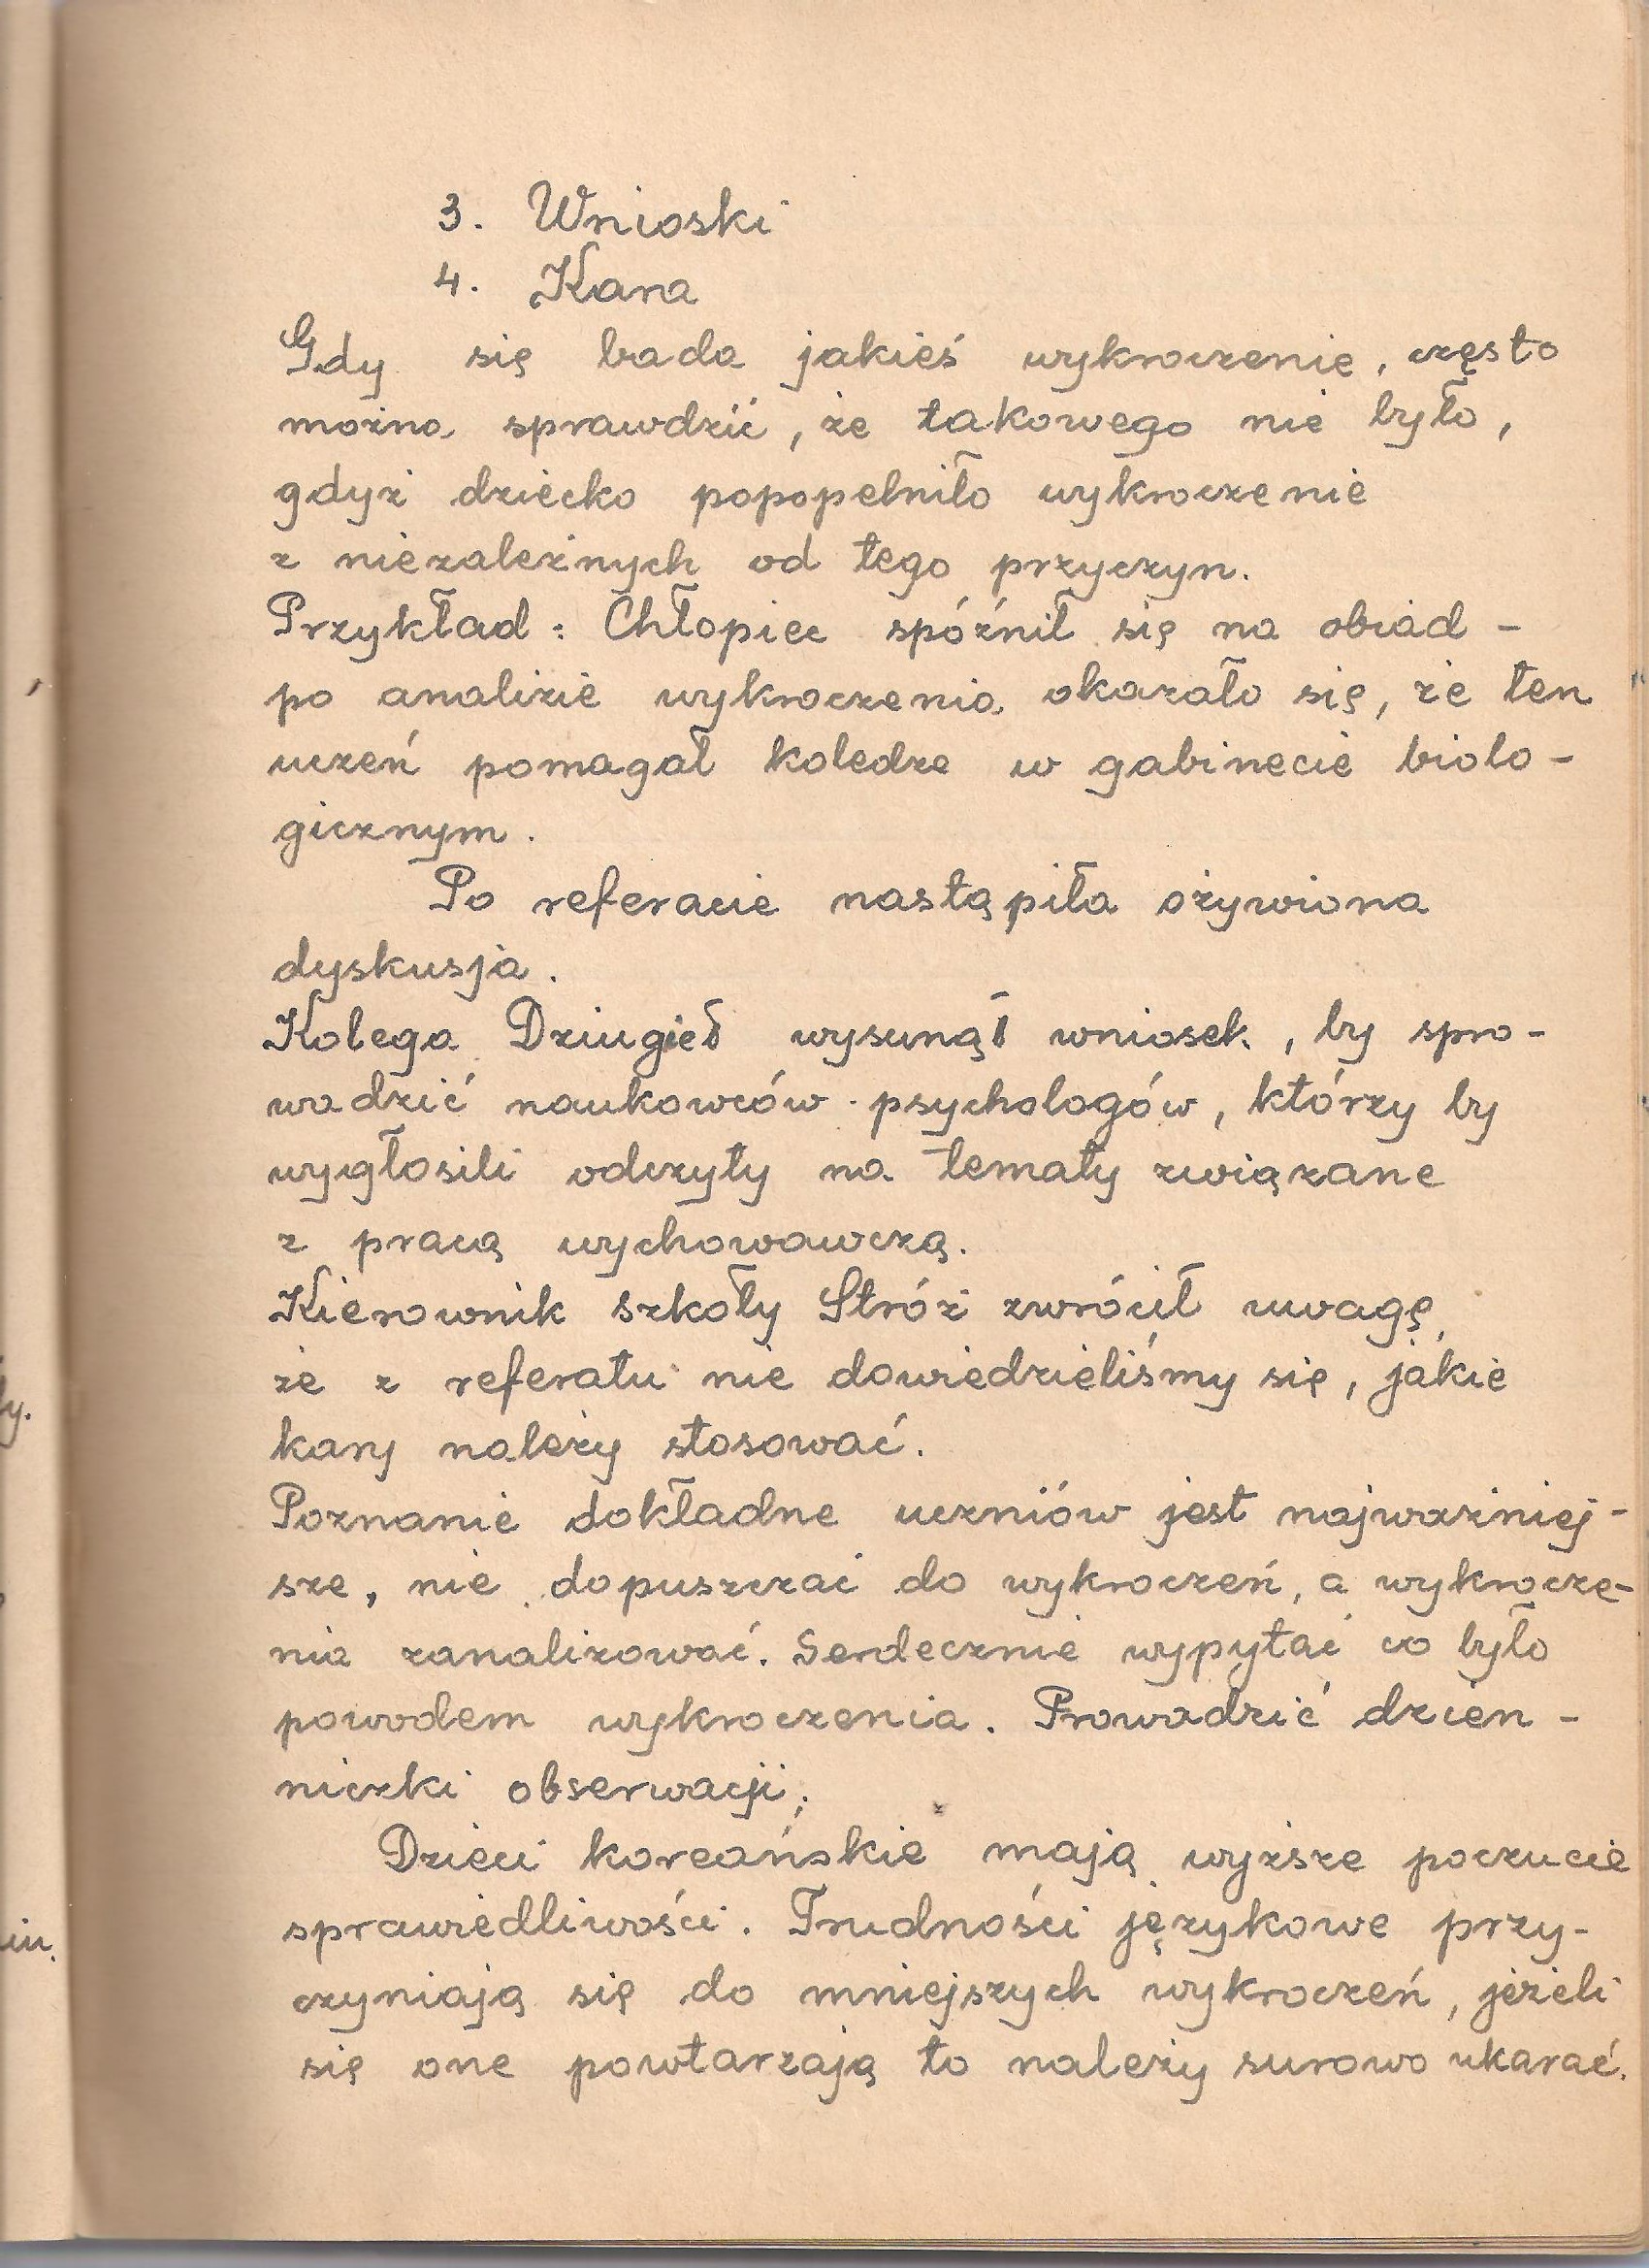 3. Wnioski
4. Kara
Gdy się bada jakieś wykroczenie, często
można sprawdzić, że takowego nie było,
gdyż dziecko popopełniło wykroczenie
z niezależnych od tego przyczyn.
Przykład: Chłopiec spóźnił się na obiad -
po analizie wykroczenia okazało się, że ten
uczeń pomagał koledze w gabinecie biolo-
gicznym.
Po referacie nastąpiła ożywiona
dyskusja.
Kolega Dziugieł wysunął wniosek, by spro-
wadzić naukowców - psychologów, którzy by
wygłosili odczyty na tematy związane
z pracą wychowawczą.
Kierownik szkoły Stróż zwrócił uwagę,
że z referatu nie dowiedzieliśmy się, jakie
kary należy stosować.
Poznanie dokładne uczniów jest najważniej-
sze, nie dopuszczać do wykroczeń, a wykrocze-
nia zanalizować. Serdecznie wypytać co było
powodem wykroczenia. Prowadzić dzien-
niczki obserwacji;
Dzieci koreańskie mają wyższe poczucie
sprawiedliwości. Trudności językowe przy-
czyniają się do mniejszych wykroczeń, jeżeli
się one powtarzają to należy surowo ukarać.